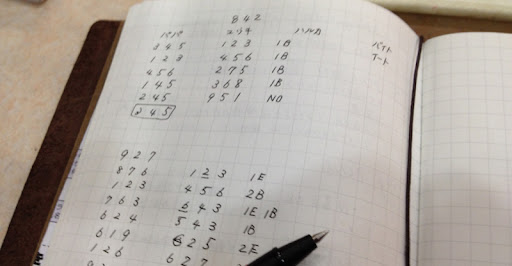 842
パパ ユウキ ハルカ
345 123 1B
123 456 1B
456 275 1B
145 368 1B
245 951 NO
345
バイト
イート
927
876 123 1E
123 456 2B
763 643 1E 1B
624 543 1B
619 625 2E
126 627